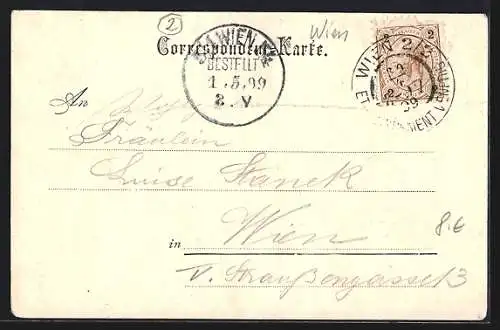 2
Wien
Correspondenz-Karte.
WIEN
BESTELLT
1.5.99
2.V
2 2
WIEN 2/2
An
Fräulein
Luise Stanek
in Wien
8.6
V. Straußengasse 3